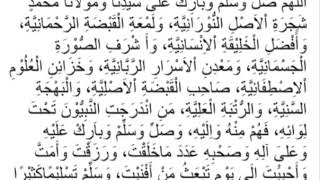 اللَّهُمَّ صَلِّ وَسَلِّمْ وَبَارِكْ عَلَى سَيِّدِنَا وَمَوْلَانَا مُحَمَّدٍ
شَجَرَةِ ٱلْأَصْلِ النُّورَانِيَّةِ، وَلَمْعَةِ الْقَبْضَةِ الرَّحْمَانِيَّةِ،
وَأَفْضَلِ الْخَلِيقَةِ ٱلْإِنْسَانِيَّةِ، وَأَشْرَفِ الصُّورَةِ
الْجِسْمَانِيَّةِ، وَمَعْدِنِ ٱلْأَسْرَارِ الرَّبَّانِيَّةِ، وَخَزَائِنِ الْعُلُومِ
ٱلْاِصْطِفَائِيَّةِ، صَاحِبِ الْقَبْضَةِ ٱلْأَصْلِيَّةِ، وَالْبَهْجَةِ
السَّنِيَّةِ، وَالرُّتْبَةِ الْعَلِيَّةِ، مَنِ انْدَرَجَتِ النَّبِيُّونَ تَحْتَ
لِوَائِهِ، فَهُمْ مِنْهُ وَإِلَيْهِ، وَصَلِّ وَسَلِّمْ وَبَارِكْ عَلَيْهِ
وَعَلَى آلِهِ وَصَحْبِهِ عَدَدَ مَاخَلَقْتَ، وَرَزَقْتَ وَأَمَتَّ
وَأَحْيَيْتَ إِلَى يَوْمِ تَبْعَثُ مَنْ أَفْنَيْتَ، وَسَلِّمْ تَسْلِيمًاكَثِيْرًا